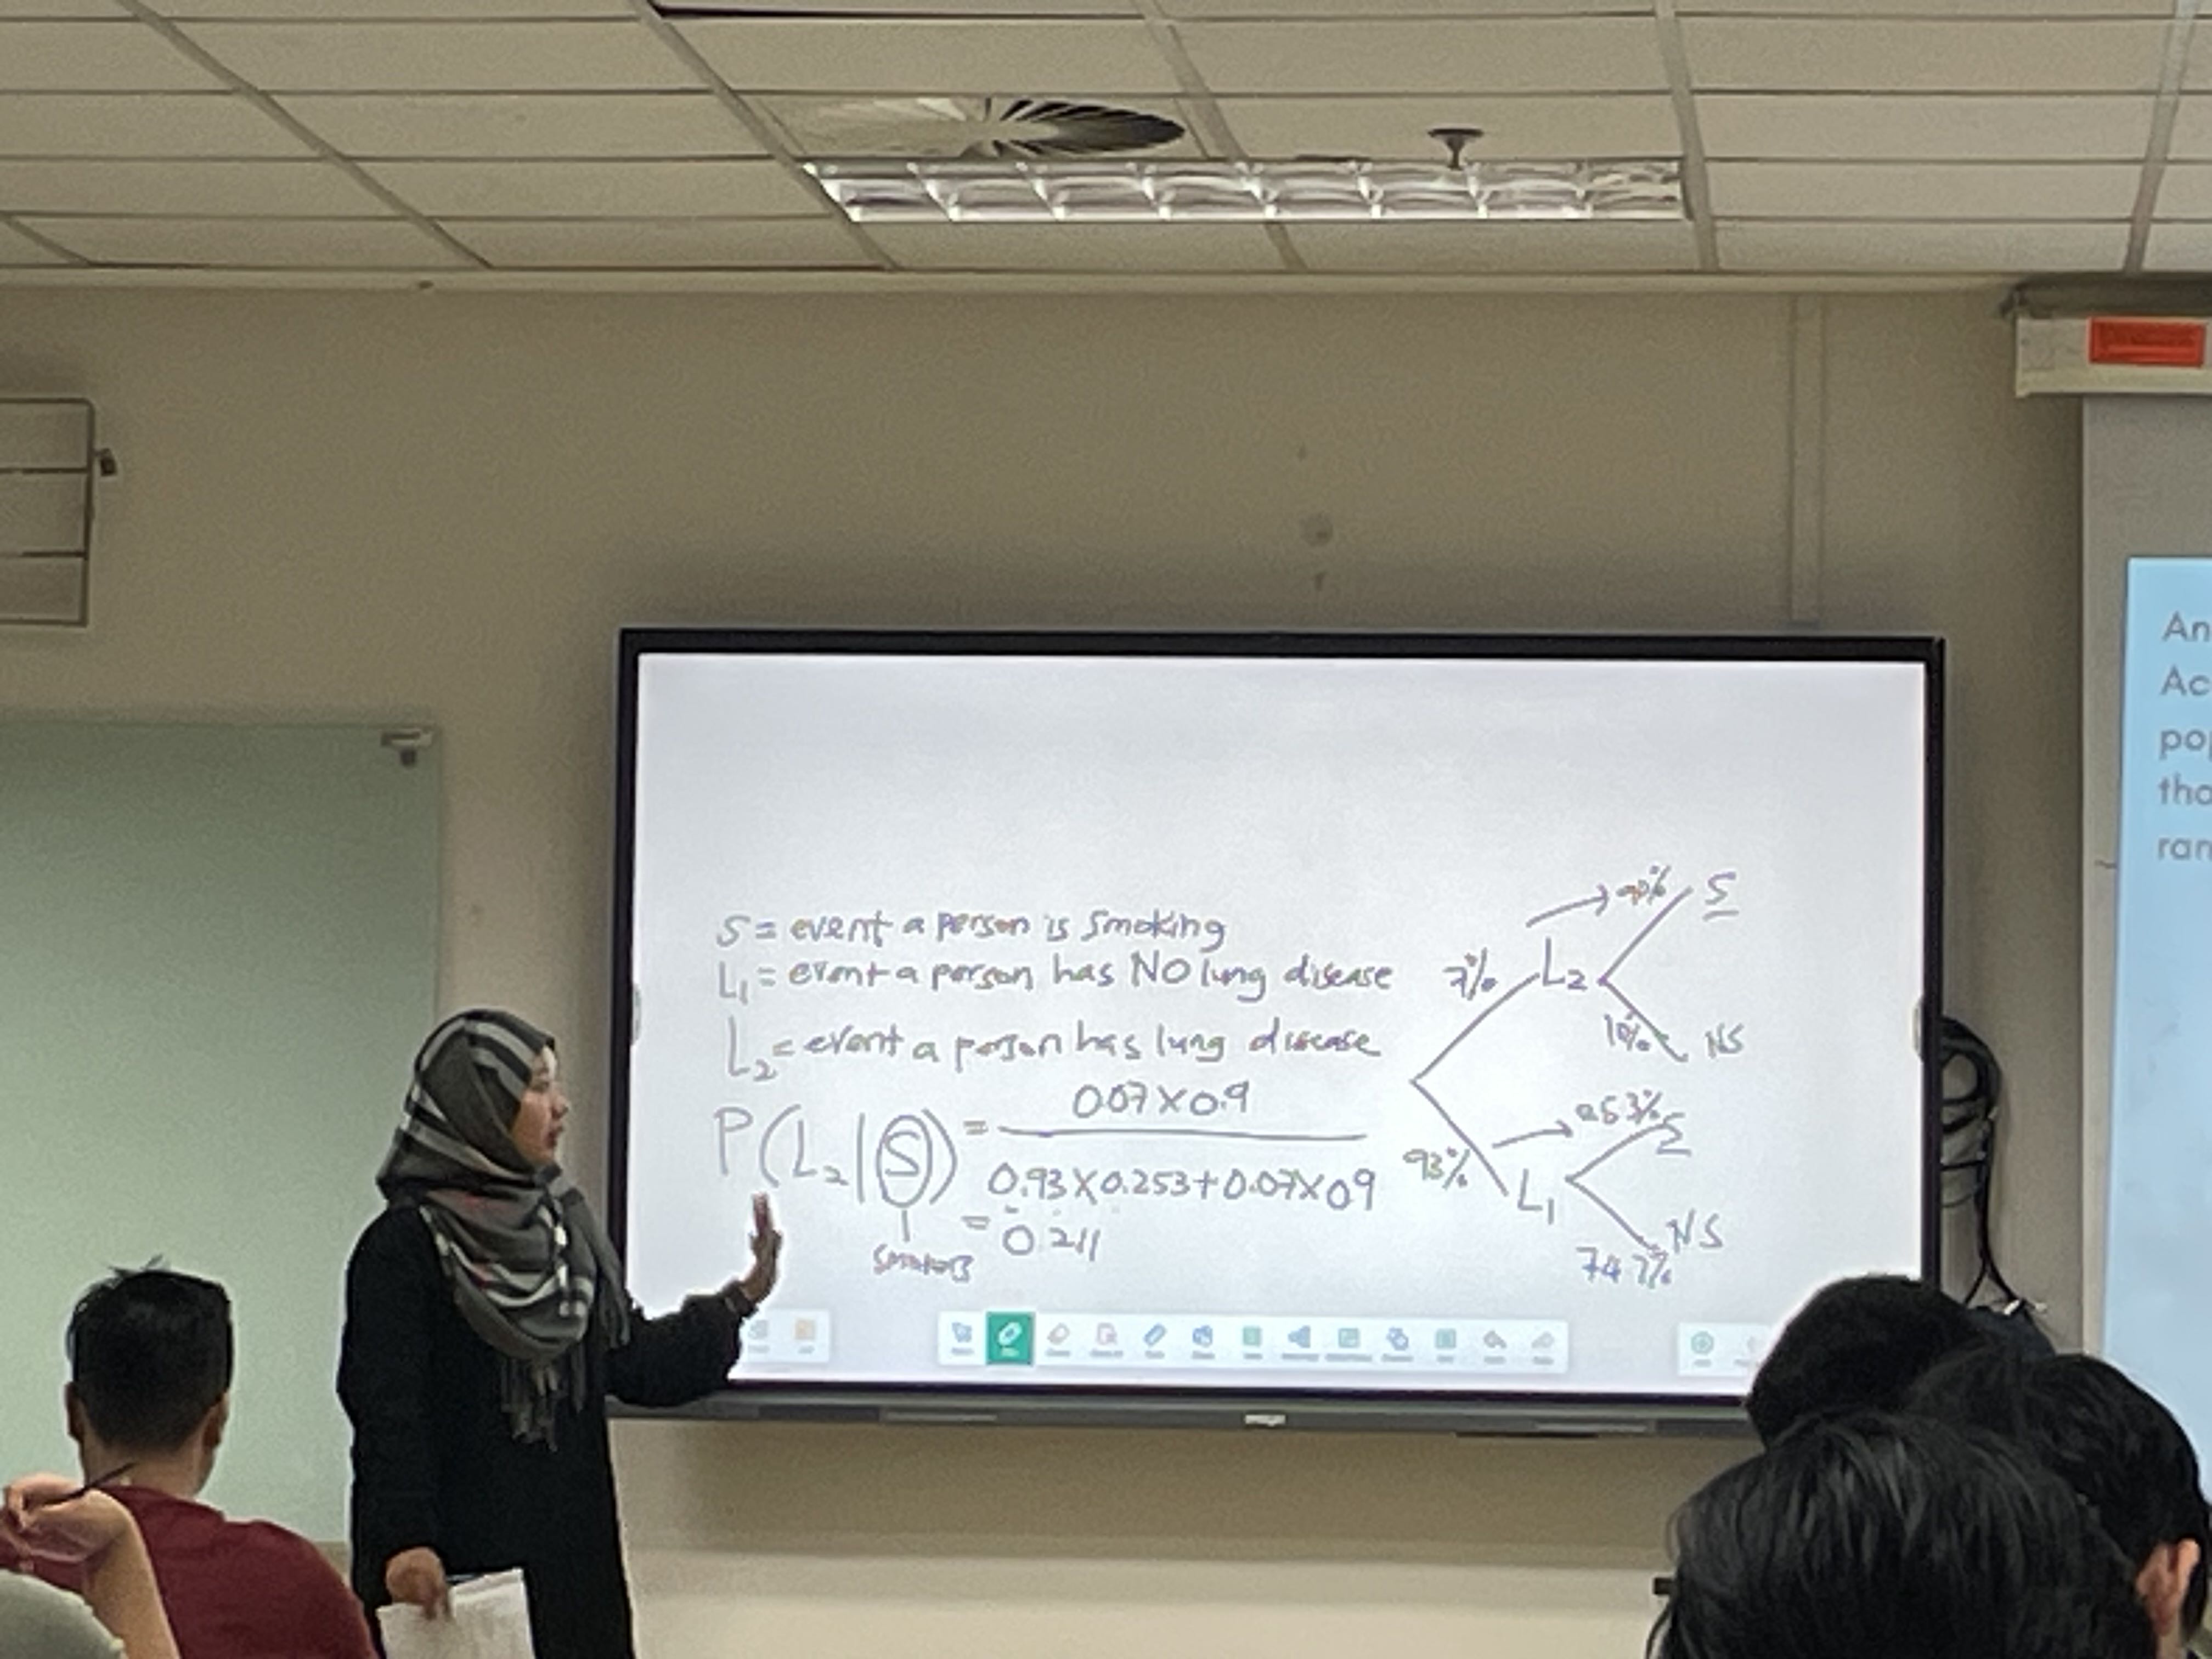 S = event a person is smoking
L1 = event a person has NO lung disease
L2 = event a person has lung disease
P(L2|S) = 0.07 X 0.9
0.93 X 0.253 + 0.07 X 0.9
smokers
= 0.211
90% S
7% L2
10% NS
25.3% S
93% L1
NS
74.7%
An
Ac
pop
tha
ran